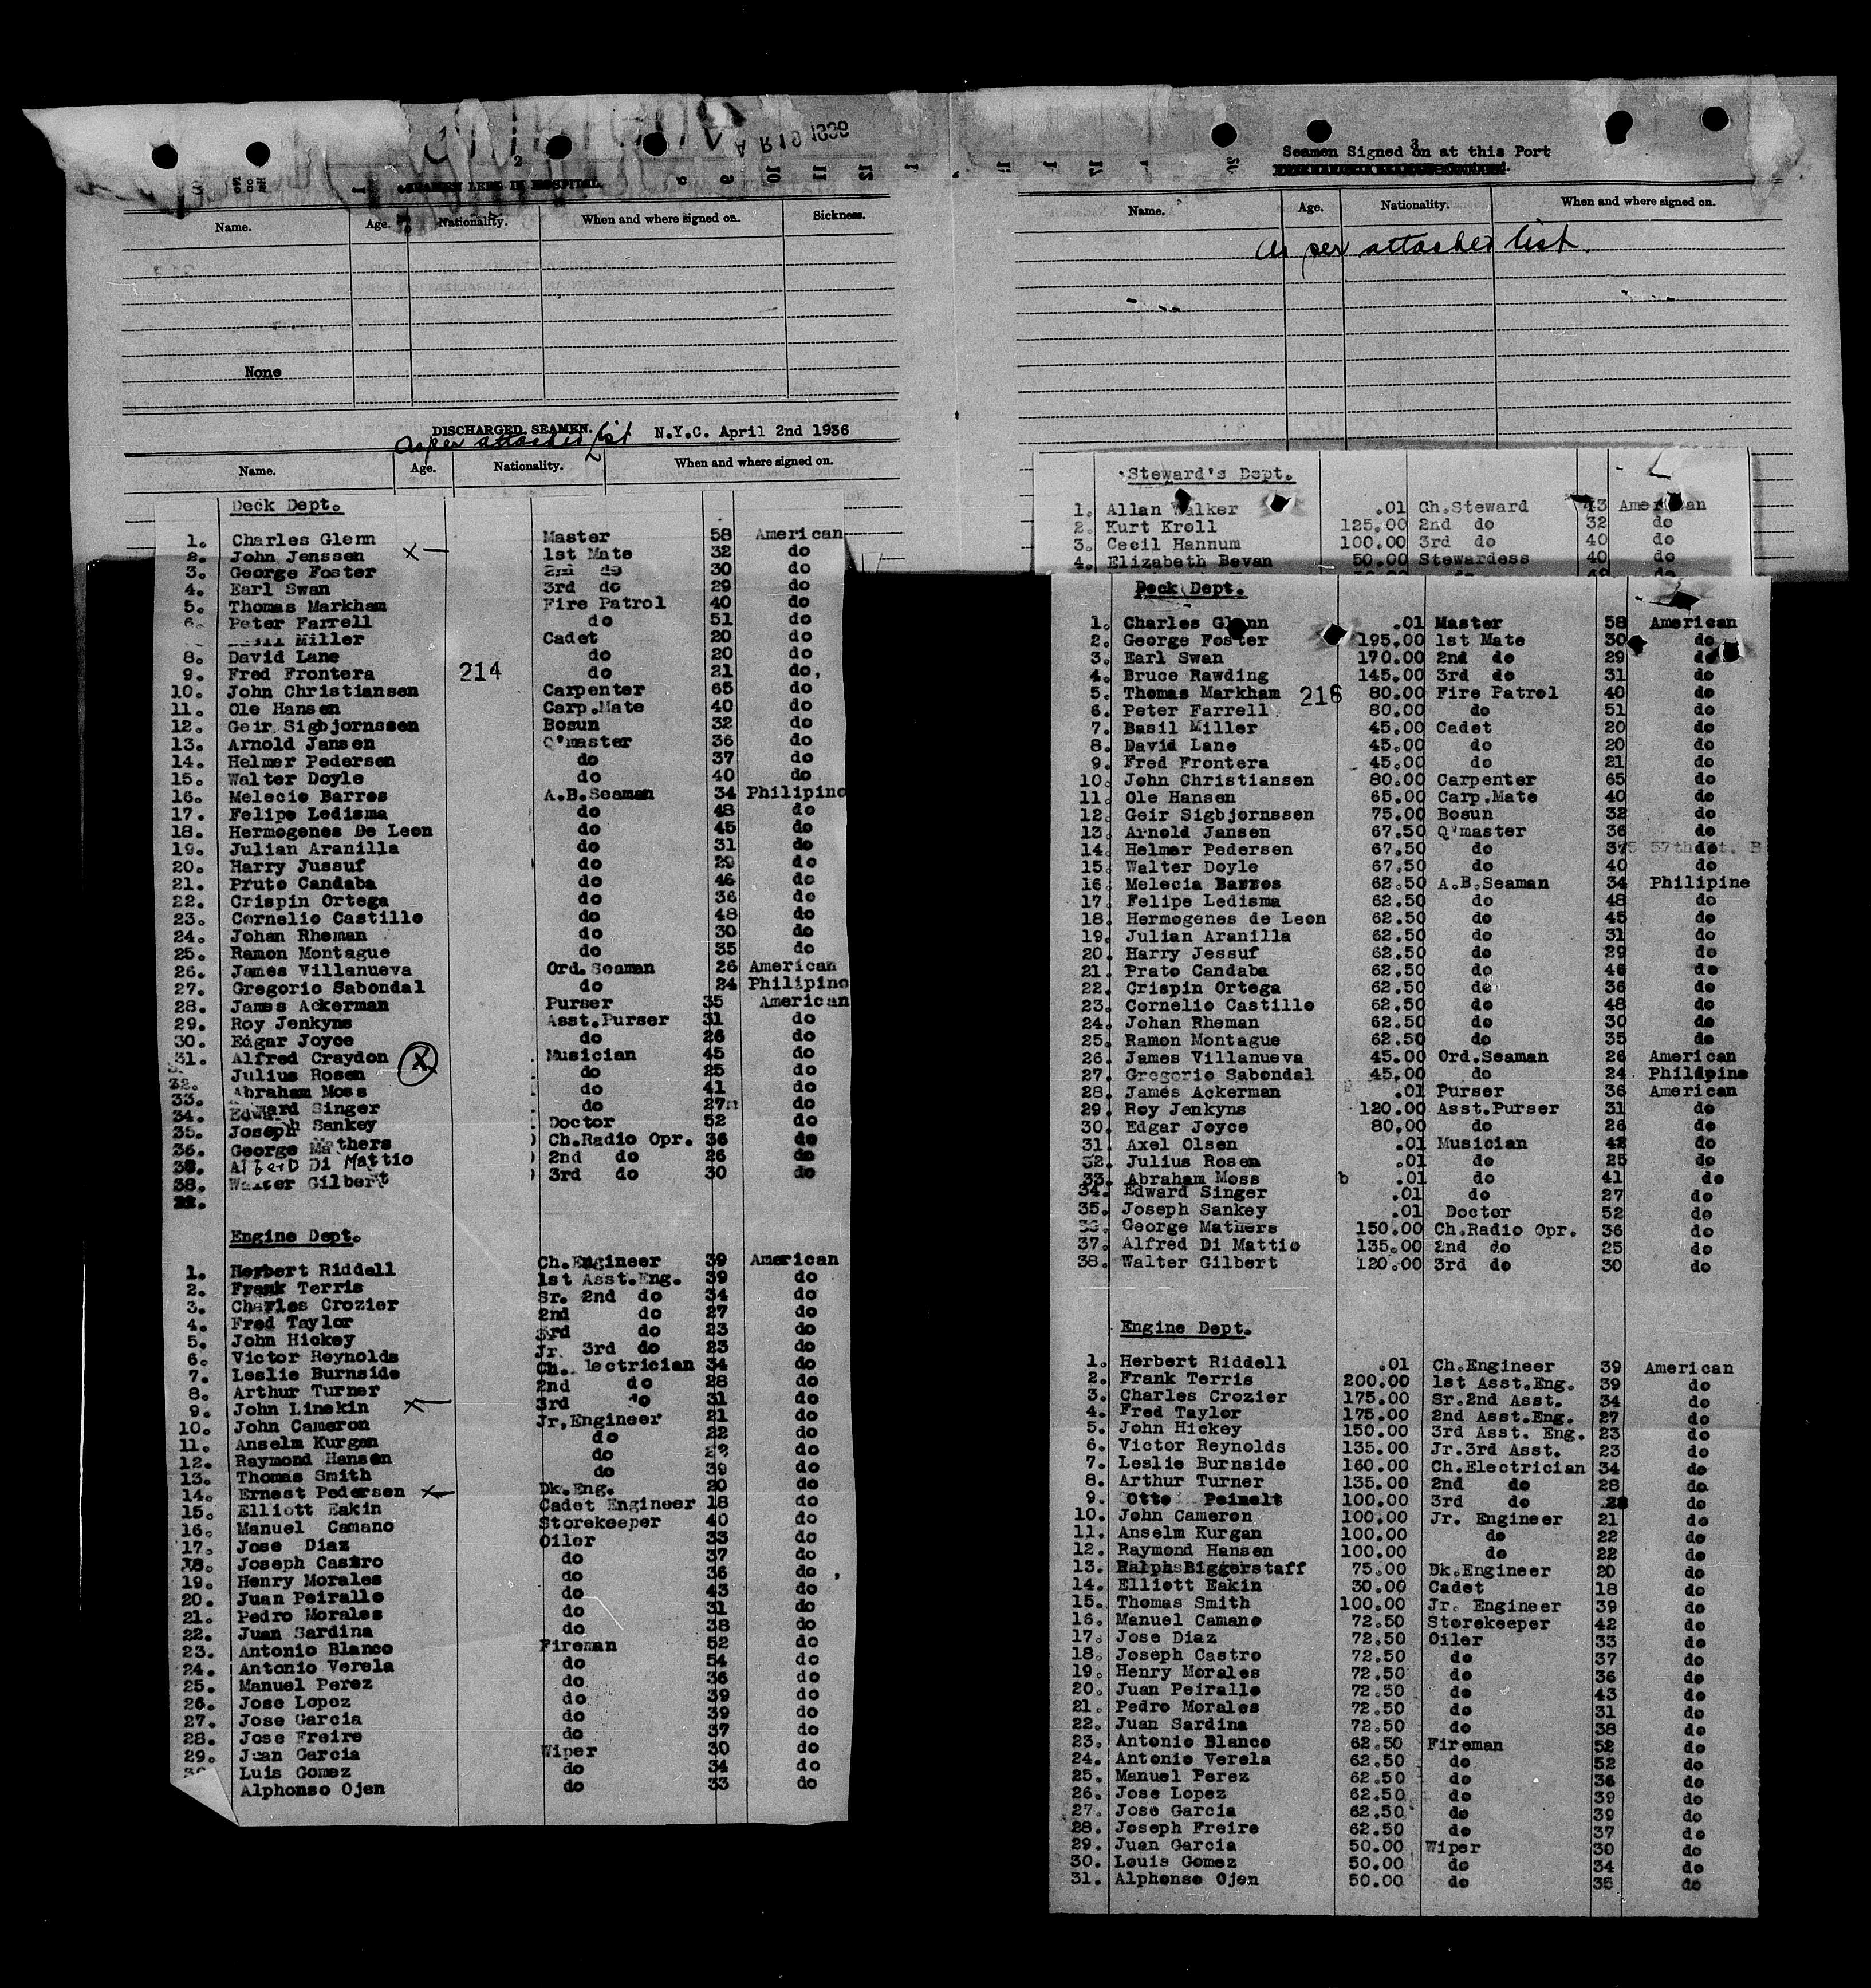 2
SEAMEN LEFT IN HOSPITAL.
Name. Age. Nationality. When and where signed on. Sickness.
None
DISCHARGED SEAMEN. N.Y.C. April 2nd 1936
As per attached list
Name. Age. Nationality. When and where signed on.
Deck Dept.
1. Charles Glenn Master 58 American
2. John Jenssen x 1st Mate 32 do
3. George Foster 2nd do 30 do
4. Earl Swan 3rd do 29 do
5. Thomas Markham Fire Patrol 40 do
6. Peter Farrell do 51 do
Miller Cadet 20 do
8. David Lane do 20 do
9. Fred Frontera 214 do 21 do,
10. John Christiansen Carpenter 65 do
11. Ole Hansen Carp.Mate 40 do
12. Geir Sigbjornssen Bosun 32 do
13. Arnold Jansen Q'master 36 do
14. Helmer Pedersen do 37 do
15. Walter Doyle do 40 do
16. Melecio Barros A.B.Seaman 34 Philipino
17. Felipe Ledisma do 48 do
18. Hermogenes De Leon do 45 do
19. Julian Aranilla do 31 do
20. Harry Jussuf do 29 do
21. Pruto Candaba do 46 do
22. Crispin Ortega do 36 do
23. Cornelio Castillo do 48 do
24. Johan Rheman do 30 do
25. Ramon Montague do 35 do
26. James Villanueva Ord.Seaman 26 American
27. Gregorio Sabondal do 24 Philipino
28. James Ackerman Purser 35 American
29. Roy Jenkyns Asst.Purser 31 do
30. Edgar Joyce do 26 do
31. Alfred Craydon X Musician 45 do
32. Julius Rosen do 25 do
33. Abraham Moss do 41 do
34. Edward Singer do 27 do
35. Joseph Sankey Doctor 52 do
36. George Mathers Ch.Radio Opr. 36 do
38. Alfred Di Mattio 2nd do 26 do
38. Walter Gilbert 3rd do 30 do
Engine Dept.
1. Herbert Riddell Ch.Engineer 39 American
2. Frank Terris 1st Asst.Eng. 39 do
3. Charles Crozier Sr. 2nd do 34 do
4. Fred Taylor 2nd do 27 do
5. John Hickey 3rd do 23 do
6. Victor Reynolds Jr. 3rd do 23 do
7. Leslie Burnside Ch. lectrician 34 do
8. Arthur Turner 2nd do 28 do
9. John Linekin x 3rd do 31 do
10. John Cameron Jr,Engineer 21 do
11. Anselm Kurgan do 22 do
12. Raymond Hansen do 22 do
13. Thomas Smith do 39 do
14. Ernest Pedersen x Dk.Eng. 20 do
15. Elliott Eakin Cadet Engineer 18 do
16. Manuel Camano Storekeeper 40 do
17. Jose Diaz Oiler 33 do
18. Joseph Castro do 37 do
19. Henry Morales do 36 do
20. Juan Peirallo do 43 do
21. Pedro Morales do 31 do
22. Juan Sardina do 38 do
23. Antonio Blanco Fireman 52 do
24. Antonio Verela do 54 do
25. Manuel Perez do 36 do
26. Jose Lopez do 39 do
27. Jose Garcia do 39 do
28. Jose Freire do 37 do
29. Juan Garcia Wiper 30 do
Luis Gomez do 34 do
Alphonso Ojen do 33 do
3
Seamen Signed on at this Port
Name. Age. Nationality. When and where signed on.
As per attached list.
Steward's Dept.
1. Allan Walker .01 Ch.Steward 43 American
2. Kurt Kroll 125.00 2nd do 32 do
3. Cecil Hannum 100.00 3rd do 40 do
4. Elizabeth Bevan 50.00 Stewardess 40 do
Deck Dept.
1. Charles Glenn .01 Master 58 American
2. George Foster 195.00 1st Mate 30 do
3. Earl Swan 170.00 2nd do 29 do
4. Bruce Rawding 145.00 3rd do 31 do
5. Thomas Markham 216 80.00 Fire Patrol 40 do
6. Peter Farrell 80.00 do 51 do
7. Basil Miller 45.00 Cadet 20 do
8. David Lane 45.00 do 20 do
9. Fred Frontera 45.00 do 21 do
10. John Christiansen 80.00 Carpenter 65 do
11. Ole Hansen 65.00 Carp.Mate 40 do
12. Geir Sigbjornssen 75.00 Bosun 32 do
13. Arnold Jansen 67.50 Q'master 36 do
14. Helmer Pedersen 67.50 do 37 do
15. Walter Doyle 67.50 do 40 do
16. Melecia Barros 62.50 A.B.Seaman 34 Philipine
17. Felipe Ledisma 62.50 do 48 do
18. Hermogenes de Leon 62.50 do 45 do
19. Julian Aranilla 62.50 do 31 do
20. Harry Jessuf 62.50 do 29 do
21. Prato Candaba 62.50 do 46 do
22. Crispin Ortega 62.50 do 36 do
23. Cornelio Castillo 62.50 do 48 do
24. Johan Rheman 62.50 do 30 do
25. Ramon Montague 62.50 do 35 do
26. James Villanueva 45.00 Ord.Seaman 26 American
27. Gregorio Sabondal 45.00 do 24 Philipine
28. James Ackerman .01 Purser 36 American
29. Roy Jenkyns 120.00 Asst.Purser 31 do
30. Edgar Joyce 80.00 do 26 do
31. Axel Olsen .01 Musician 42 do
32. Julius Rosen .01 do 25 do
33. Abraham Moss .01 do 41 do
34. Edward Singer .01 do 27 do
35. Joseph Sankey .01 Doctor 52 do
36. George Mathers 150.00 Ch.Radio Opr. 36 do
37. Alfred Di Mattio 135.00 2nd do 25 do
38. Walter Gilbert 120.00 3rd do 30 do
Engine Dept.
1. Herbert Riddell .01 Ch.Engineer 39 American
2. Frank Terris 200.00 1st Asst.Eng. 39 do
3. Charles Crozier 175.00 Sr.2nd Asst. 34 do
4. Fred Taylor 175.00 2nd Asst.Eng. 27 do
5. John Hickey 150.00 3rd Asst. Eng. 23 do
6. Victor Reynolds 135.00 Jr.3rd Asst. 23 do
7. Leslie Burnside 160.00 Ch.Electrician 34 do
8. Arthur Turner 135.00 2nd do 28 do
9. Otto Peinelt 100.00 3rd do 28 do
10. John Cameron 100.00 Jr. Engineer 21 do
11. Anselm Kurgan 100.00 do 22 do
12. Raymond Hansen 100.00 do 22 do
13. Ralph Biggerstaff 75.00 Dk.Engineer 20 do
14. Elliott Eakin 30.00 Cadet 18 do
15. Thomas Smith 100.00 Jr. Engineer 39 do
16. Manuel Camano 72.50 Storekeeper 42 do
17. Jose Diaz 72.50 Oiler 33 do
18. Joseph Castro 72.50 do 37 do
19. Henry Morales 72.50 do 36 do
20. Juan Peirallo 72.50 do 43 do
21. Pedro Morales 72.50 do 31 do
22. Juan Sardina 72.50 do 38 do
23. Antonio Blanco 62.50 Fireman 52 do
24. Antonio Verela 62.50 do 52 do
25. Manuel Perez 62.50 do 36 do
26. Jose Lopez 62.50 do 39 do
27. Jose Garcia 62.50 do 39 do
28. Joseph Freire 62.50 do 37 do
29. Juan Garcia 50.00 Wiper 30 do
30. Louis Gomez 50.00 do 34 do
31. Alphonso Ojen 50.00 do 35 do